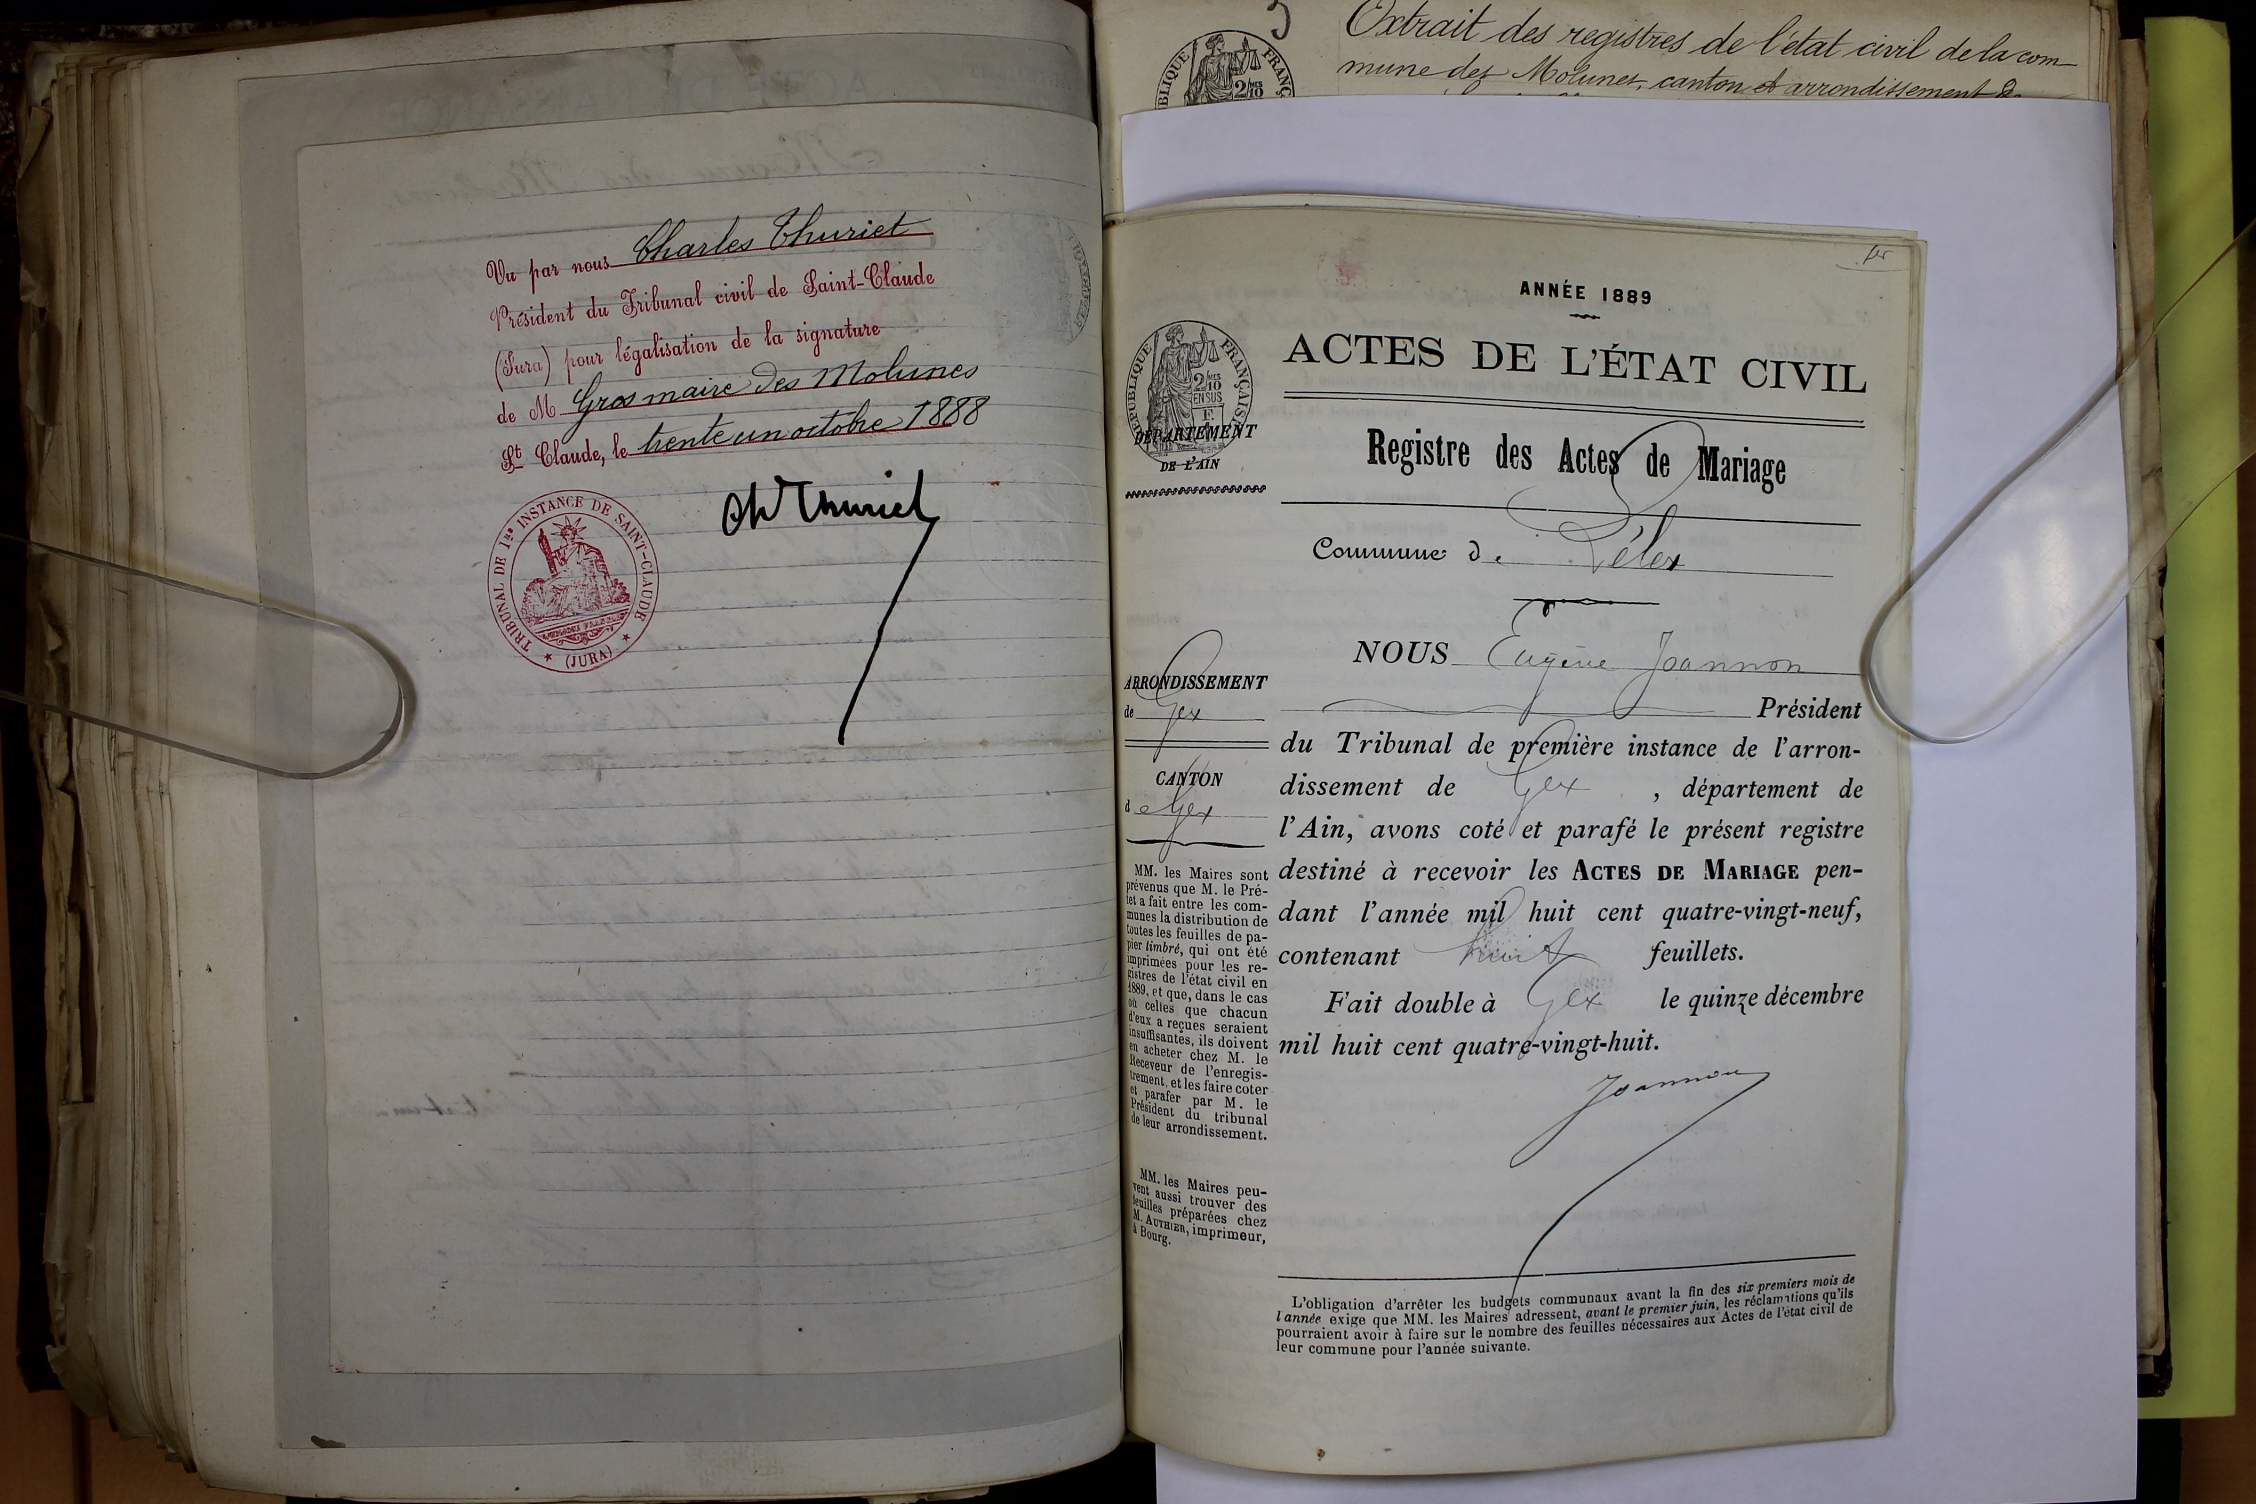 Vu par nous Charles Thuriet
Président du Tribunal civil de Saint-Claude
(Jura) pour légalisation de la signature
de M Gros maire des Molunes
St Claude, le trente un octobre 1888
Ch Thuriet
TRIBUNAL DE 1re INSTANCE DE SAINT-CLAUDE
(JURA)
Extrait des registres de l'état civil de la com-
mune des Molunes, canton et arrondissement de
RÉPUBLIQUE FRANÇAISE
1er
ANNÉE 1889
ACTES DE L'ÉTAT CIVIL
Registre des Actes de Mariage
Commune de Lélex
RÉPUBLIQUE FRANÇAISE
2/10 EN SUS
DÉPARTEMENT
DE L'AIN
ARRONDISSEMENT
de Gex
CANTON
de Gex
MM. les Maires sont
prévenus que M. le Pré-
fet a fait entre les com-
munes la distribution de
toutes les feuilles de pa-
pier timbré, qui ont été
imprimées pour les re-
gistres de l'état civil en
1889, et que, dans le cas
où celles que chacun
d'eux a reçues seraient
insuffisantes, ils doivent
en acheter chez M. le
Receveur de l'enregis-
trement, et les faire coter
et parafer par M. le
Président du tribunal
de leur arrondissement.
MM. les Maires peu-
vent aussi trouver des
feuilles préparées chez
M. AUTHIER, imprimeur,
à Bourg.
NOUS Eugène Joannon
Président
du Tribunal de première instance de l'arron-
dissement de Gex, département de
l'Ain, avons coté et parafé le présent registre
destiné à recevoir les ACTES DE MARIAGE pen-
dant l'année mil huit cent quatre-vingt-neuf,
contenant huit feuillets.
Fait double à Gex le quinze décembre
mil huit cent quatre-vingt-huit.
Joannon
L'obligation d'arrêter les budgets communaux avant la fin des six premiers mois de
l'année exige que MM. les Maires adressent, avant le premier juin, les réclamations qu'ils
pourraient avoir à faire sur le nombre des feuilles nécessaires aux Actes de l'état civil de
leur commune pour l'année suivante.